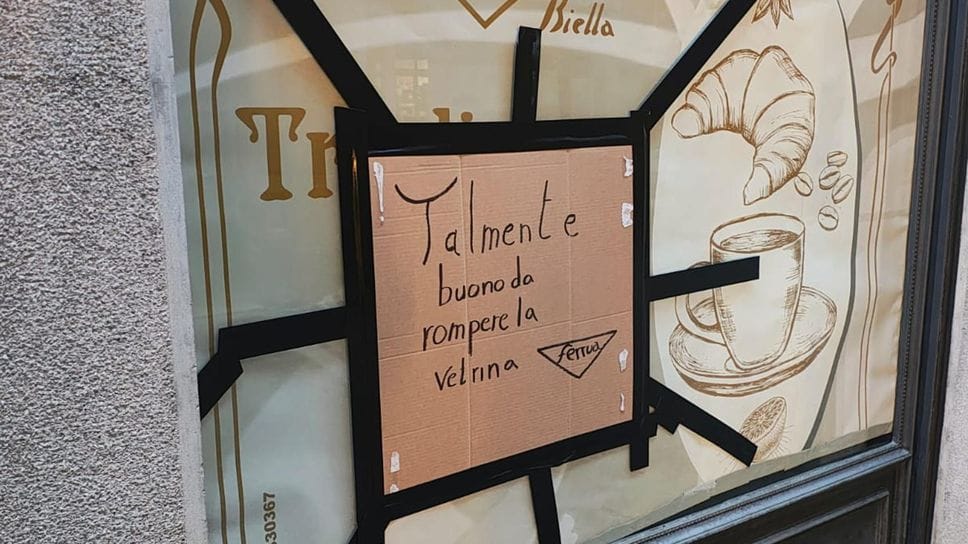 Biella
Talmente
buono da
rompere la
vetrina
ferrua
30367